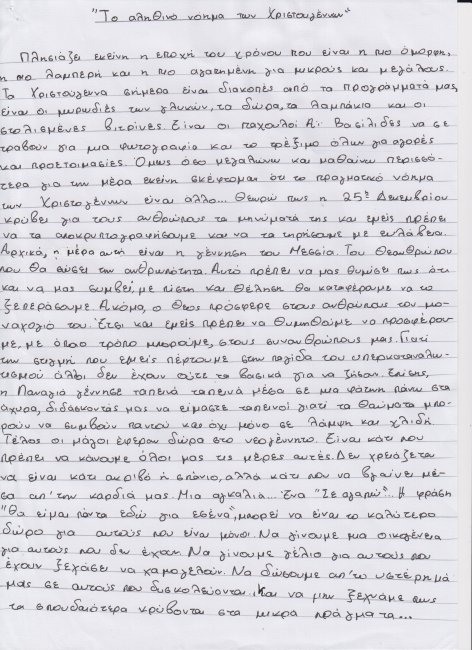 "Το αληθινό νόημα των Χριστουγέννων"
Πλησιάζει εκείνη η εποχή του χρόνου που είναι η πιο όμορφη,
η πιο λαμπερή και η πιο αγαπημένη για μικρούς και μεγάλους.
Τα Χριστούγεννα σήμερα είναι διακοπές από τα προγράμματά μας,
είναι οι μυρωδιές των γλυκών, τα δώρα, τα λαμπάκια και οι
στολισμένες βιτρίνες. Είναι οι παχουλοί Αϊ Βασίληδες να σε
τραβούν για μια φωτογραφία και το τρέξιμο όλων για αγορές
και προετοιμασίες. Όμως όσο μεγαλώνω και μαθαίνω περισσό-
τερα για την μέρα εκείνη σκέφτομαι ότι το πραγματικό νόημα
των Χριστουγέννων είναι άλλο... Θεωρώ πως η 25η Δεκεμβρίου
κρύβει για τους ανθρώπους τα μηνύματά της και εμείς πρέπει
να τα αποκρυπτογραφήσουμε και να τα τηρήσουμε με ευλάβεια.
Αρχικά, η μέρα αυτή είναι η γέννηση του Μεσσία. Του Θεανθρώπου
που θα σώσει την ανθρωπότητα. Αυτό πρέπει να μας θυμίσει πως ότι
και να μας συμβεί, με πίστη και θέληση θα καταφέρουμε να το
ξεπεράσουμε. Ακόμα, ο Θεός πρόσφερε στους ανθρώπους τον μο-
ναχογιό του. Έτσι και εμείς πρέπει να θυμηθούμε να προσφέρου-
με, με όποιο τρόπο μπορούμε, στους συνανθρώπους μας. Γιατί
την στιγμή που εμείς πέφτουμε στην παγίδα του υπερκαταναλω-
τισμού άλλοι δεν έχουν ούτε τα βασικά για να ζήσουν. Επίσης,
η Παναγία γέννησε ταπεινά ταπεινά μέσα σε μια φάτνη πάνω στα
άχυρα, διδάσκοντάς μας να είμαστε ταπεινοί γιατί τα θαύματα μπο-
ρούν να συμβούν παντού και όχι μόνο σε λάμψη και χλιδή.
Τέλος οι μάγοι έφεραν δώρα στο νεογέννητο. Είναι κάτι που
πρέπει να κάνουμε όλοι μας τις μέρες αυτές. Δεν χρειάζεται
να είναι κάτι ακριβό ή σπάνιο, αλλά κάτι που να βγαίνει μέ-
σα απ'την καρδιά μας. Μια αγκαλιά... Ένα "Σε αγαπώ"... Η φράση
"Θα είμαι πάντα εδώ για εσένα", μπορεί να είναι το καλύτερο
δώρο για αυτούς που είναι μόνοι. Να γίνουμε μια οικογένεια
για αυτούς που δεν έχουν. Να γίνουμε γέλιο για αυτούς που
έχουν ξεχάσει να χαμογελούν. Να δώσουμε απ'το υστέρημά
μας σε αυτούς που δυσκολεύονται. Και να μην ξεχνάμε πως
τα σπουδαιότερα κρύβονται στα μικρά πράγματα...